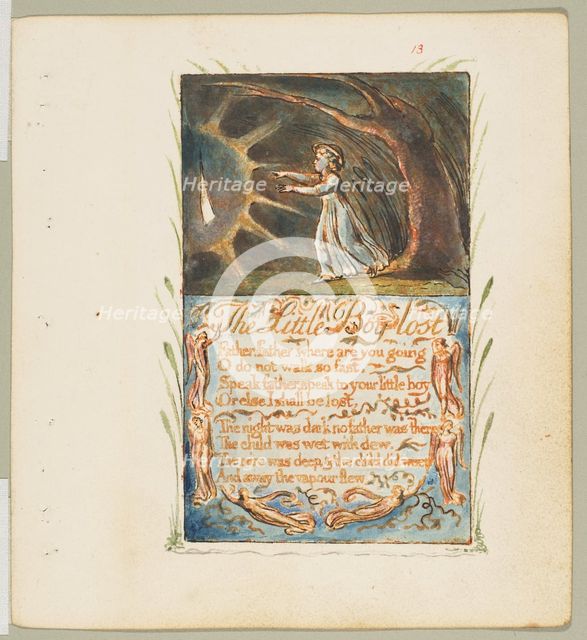 13
Heritage
Heritage
The Little Boy lost
Heritage
Heritage
Father, father where are you going
O do not walk so fast
Speak father, speak to your little boy
Or else I shall be lost
The night was dark no father was there
The child was wet with dew.
The mire was deep, & the child did weep
And away the vapour flew
Heritage
Heritage